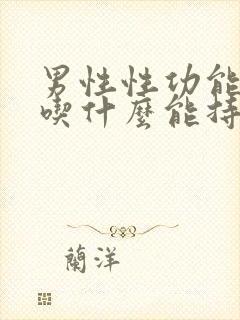 男性性功能
喫什麼能持
蘭洋